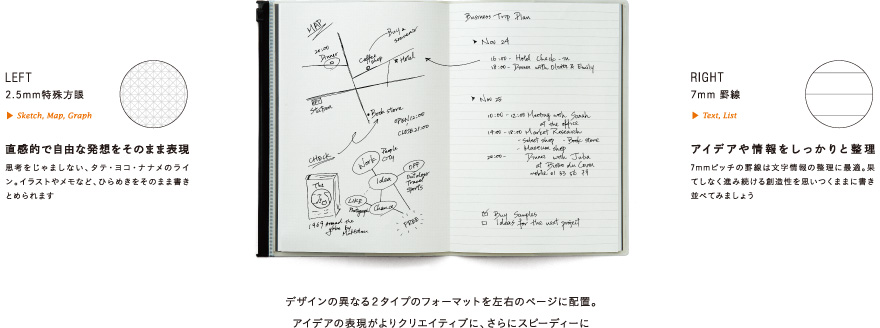 LEFT
2.5mm特殊方眼
▶ Sketch, Map, Graph
直感的で自由な発想をそのまま表現
思考をじゃましない、タテ・ヨコ・ナナメのライ
ン。イラストやメモなど、ひらめきをそのまま書き
とめられます
MAP
20:00
Dinner
Coffee
shop
Buy a
souvenir
Hotel
Station
Book store
OPEN 12:00
CLOSE 21:00
CHECK
Work
People
City
Idea
OFF
Outdoor
Travel
Sports
The
LIKE
Photograph
Chance
FREE
1969 around the
globe by
Business Trip Plan
Nov 24
16:00 - Hotel Check-in
18:00 - Dinner with Olivia & Emily
Nov 25
10:00 - 12:00 Meeting with Sarah
at the office
14:00 - 18:00 Market Research
- Select shop - Book store
- Museum shop
20:00 - Dinner with Julia
at Bistro du Coeur
mobile 01 53 56 79
Buy Samples
Ideas for the next project
RIGHT
7mm 罫線
▶ Text, List
アイデアや情報をしっかりと整理
7mmピッチの罫線は文字情報の整理に最適。果
てしなく進み続ける創造性を思いつくままに書き
並べてみましょう
デザインの異なる2タイプのフォーマットを左右のページに配置。
アイデアの表現がよりクリエイティブに、さらにスピーディーに